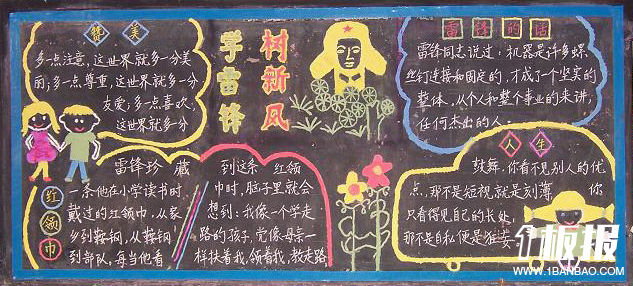 赞美
多点注意，这世界就多一分美
丽；多点尊重，这世界就多一分
友爱；多点喜欢，
这世界就多一分
学雷锋
树新风
雷锋的话
雷锋同志说过：机器是许多螺
丝钉连接和固定的，才成了一个坚美的
整体，从个人和整个事业的来讲，
任何杰出的人
红领巾
雷锋珍藏
一条他在小学读书时
戴过的红领巾，从家
乡到鞍钢，从鞍钢
到部队，每当他看
到这条红领
巾时，脑子里就会
想到：我像一个学走
路的孩子，党像母亲一
样扶着我，领着我，教走路
人生
鼓舞，你看不见别人的优
点，那不是短视就是刻薄，你
只看得见自己的长处，
那不是自私便是狂妄
1板报
WWW.1BANBAO.COM